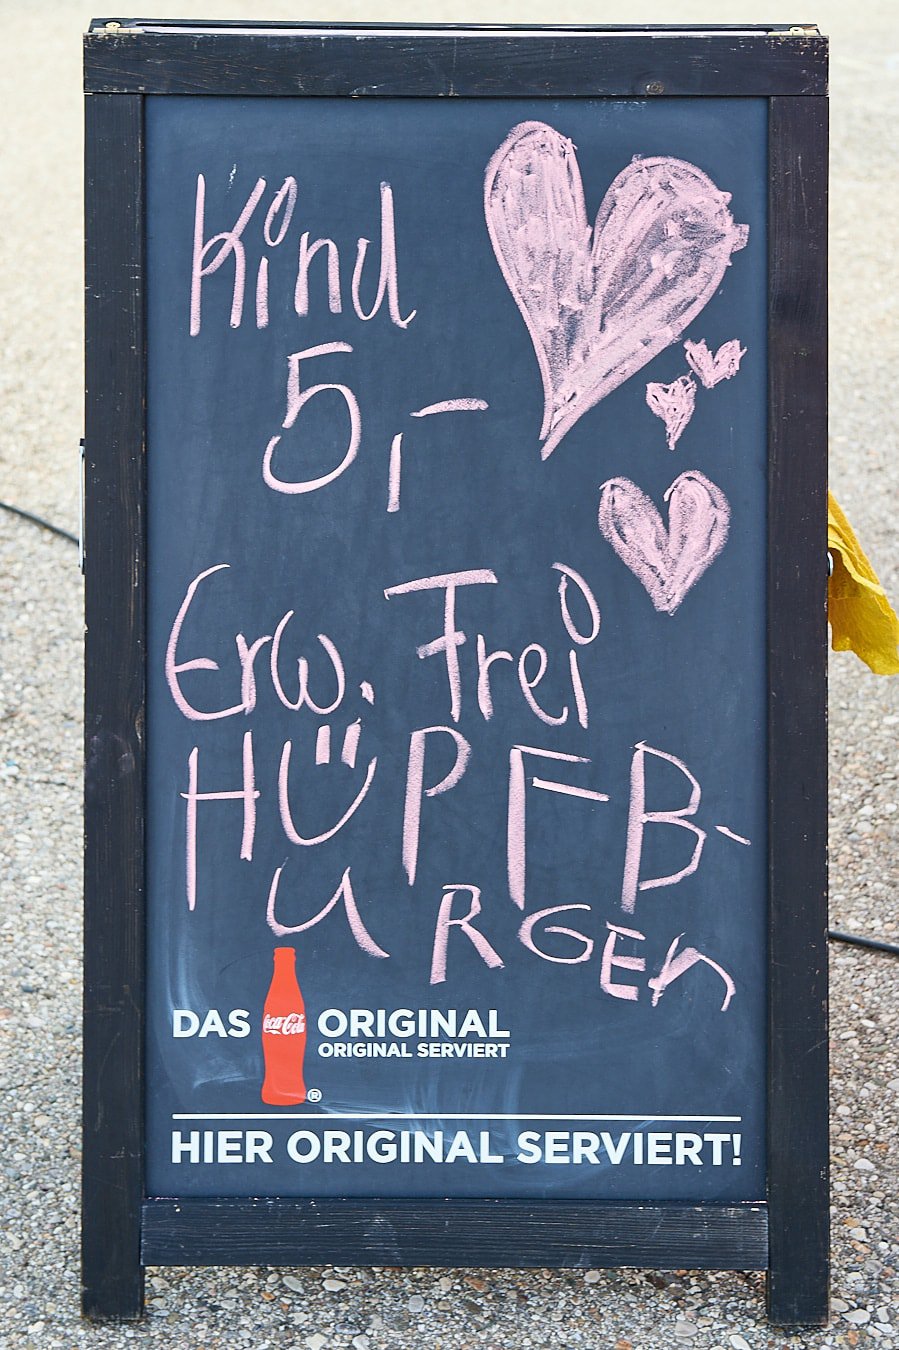 Kind
5,-
Erw. Frei
HÜPFB-
uRGEn
DAS Coca-Cola ORIGINAL
ORIGINAL SERVIERT
®
HIER ORIGINAL SERVIERT!